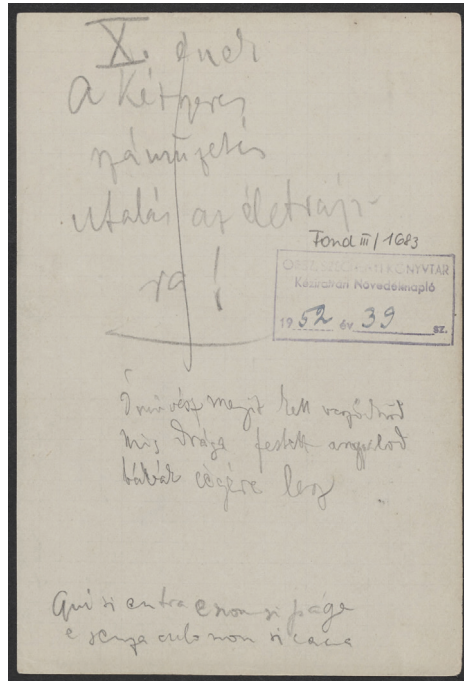 X. ének
A Kétszeres
száműzetés
utalás az életrajz-
ra!
Fond III/1683
ORSZ. SZÉCHÉNYI KÖNYVTÁR
Kézirattári Növedéknapló
1952 év 39 sz.
művész mennyit kell
míg drága festett angyalod
bábák cégére lesz
Qui si entra e non si paga
e senza culo non si caca